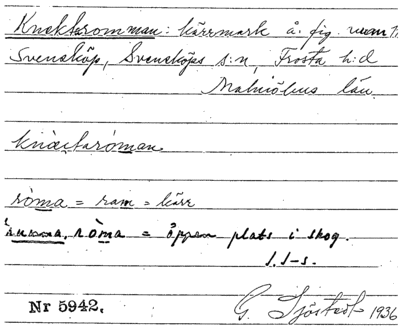 Knektaromman: kärrmark å. fig. inom N:
Svensköp, Svensköps s:n, Frosta h:d
Malmöhus län.
knæctaròman
ròma = ram = kärr
rumma, ròma = öppen plats i skog.
S.S-s.
Nr 5942.
G. Sjöstedt 1936